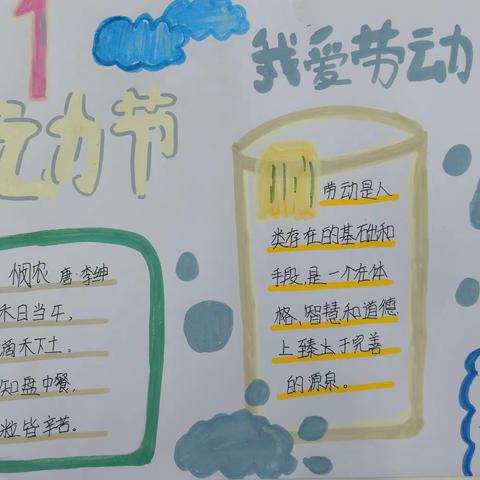 1
我爱劳动
动节
悯农 唐·李绅
禾日当午,
滴禾下土。
知盘中餐,
粒皆辛苦。
劳动是人
类存在的基础和
手段,是一个在体
格、智慧和道德
上臻于完善
的源泉。